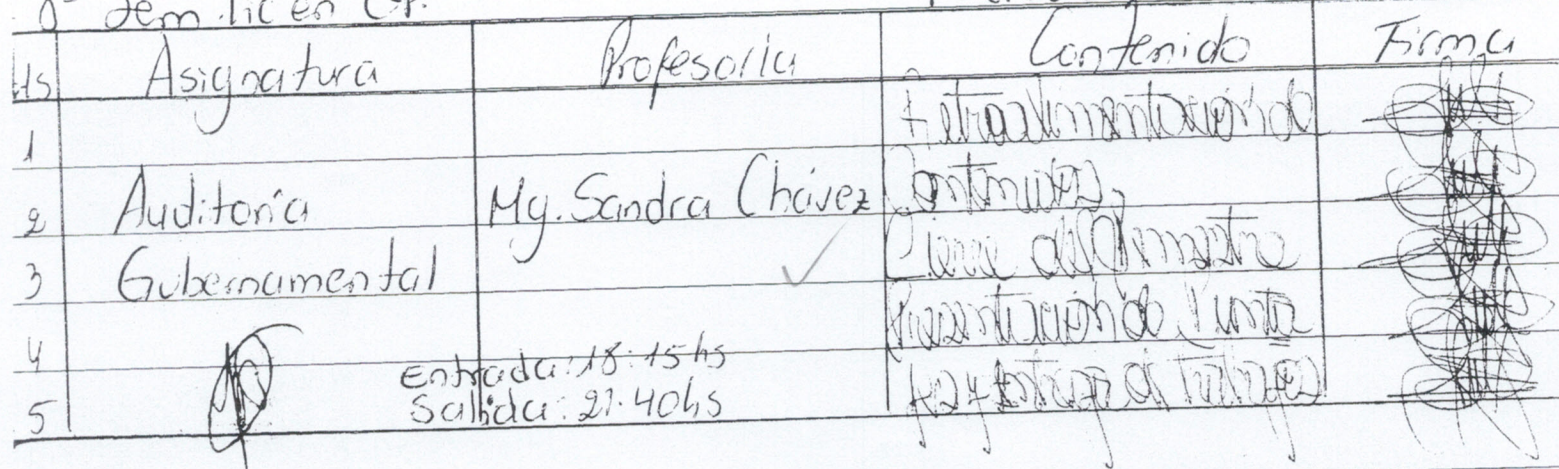 Sem. Lic en
Hs Asignatura Profesor/a Contenido Firma
1 Retroalimentación de
2 Auditoría Mg. Sandra Chávez Contenidos,
3 Gubernamental Cierre del Semestre
4 Presentación de
Entrada: 18:15hs
5 Salida: 21:40hs